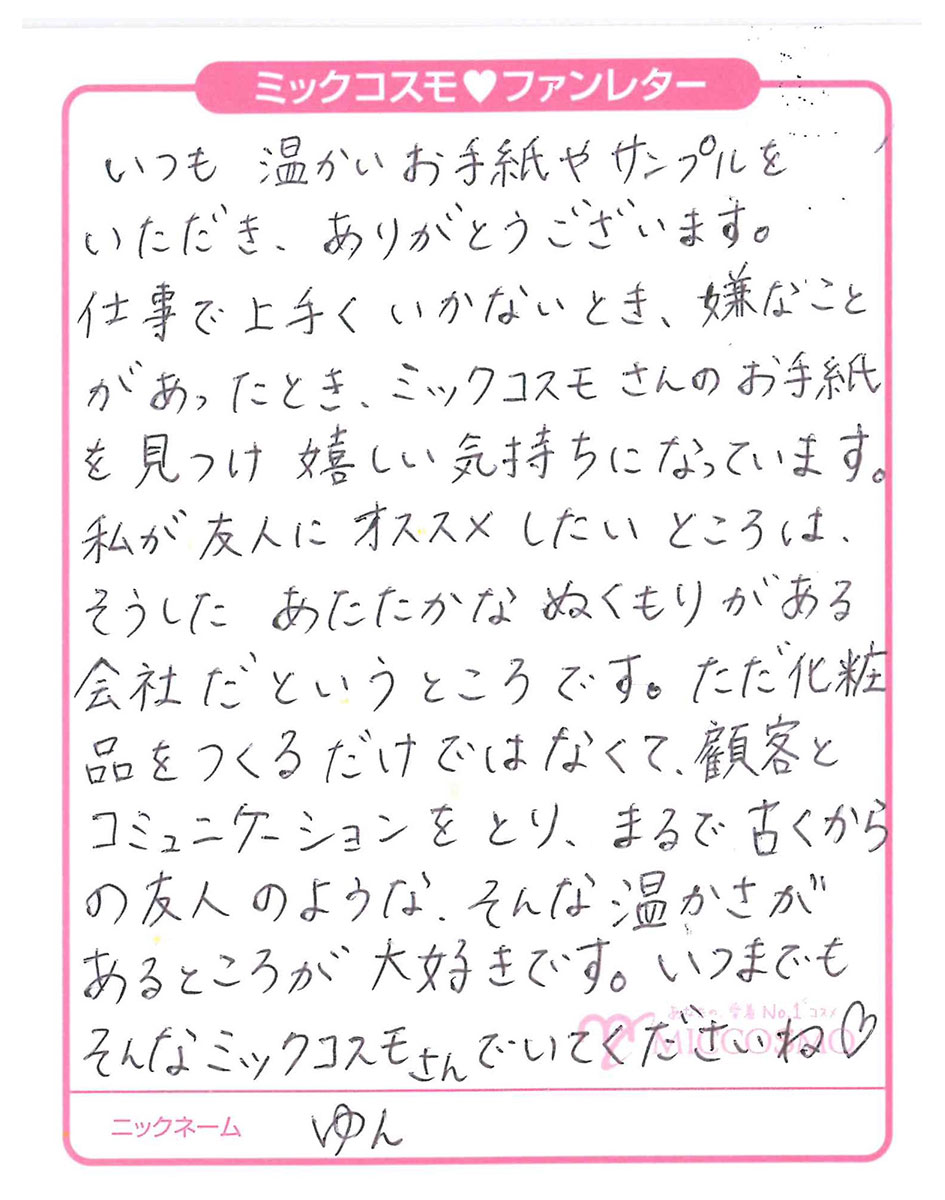 ミックコスモ♥ファンレター
いつも 温かいお手紙やサンプルを
いただき、ありがとうございます。
仕事で上手くいかないとき、嫌なこと
があったとき、ミックコスモさんのお手紙
を見つけ嬉しい気持ちになっています。
私が友人にオススメしたいところは、
そうした あたたかな ぬくもりがある
会社だというところです。ただ化粧
品をつくるだけではなくて、顧客と
コミュニケーションをとり、まるで古くから
の友人のような、そんな温かさが
あるところが大好きです。いつまでも
そんなミックコスモさんでいてくださいね♡
No.1コスメ
MICCOSMO
ニックネーム ゆん